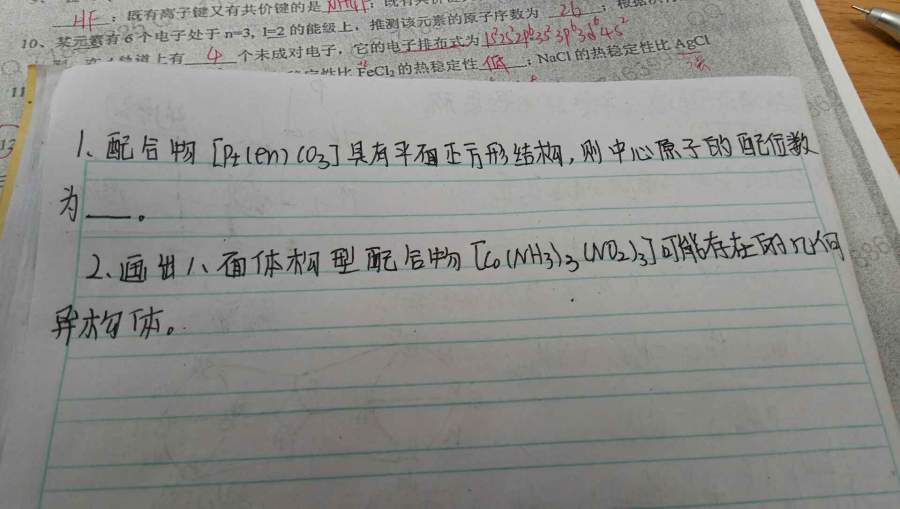 HF ；既有离子键又有共价键的是 NH4F；既有共价
10、某元素有 6 个电子处于 n=3, l=2 的能级上，推测该元素的原子序数为 26 ；根据
轨道上有 4 个未成对电子，它的电子排布式为 1s²2s²2p⁶3s²3p⁶3d⁶4s²
定性比 FeCl₂ 的热稳定性 低 ；NaCl 的热稳定性比 AgCl
11
12
1、配合物 [Pt(en)CO3] 具有平面正方形结构，则中心原子的配位数
为 ___ 。
2、画出八面体构型配合物 [Co(NH3)3(NO2)3] 可能存在的几何
异构体。